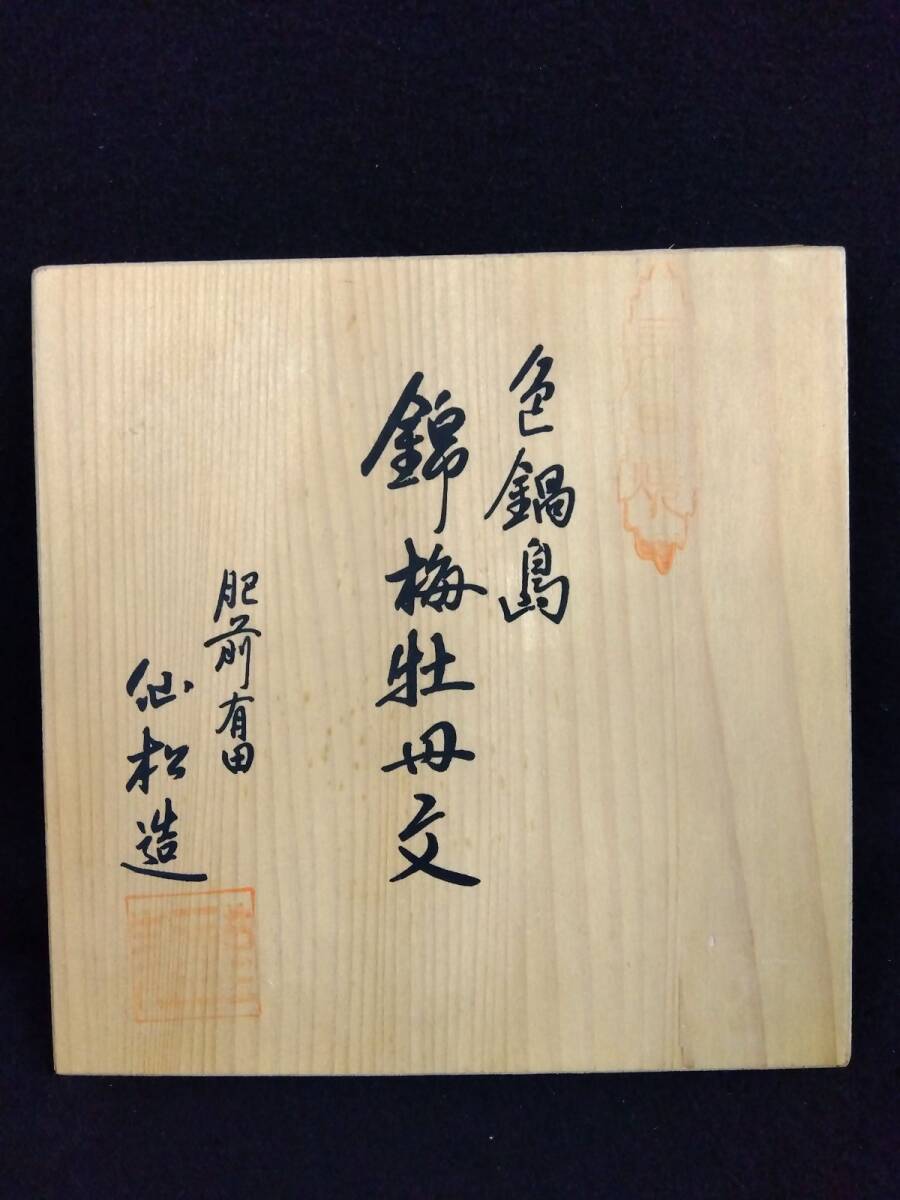 色鍋島
錦梅牡丹文
肥前有田
仙松造